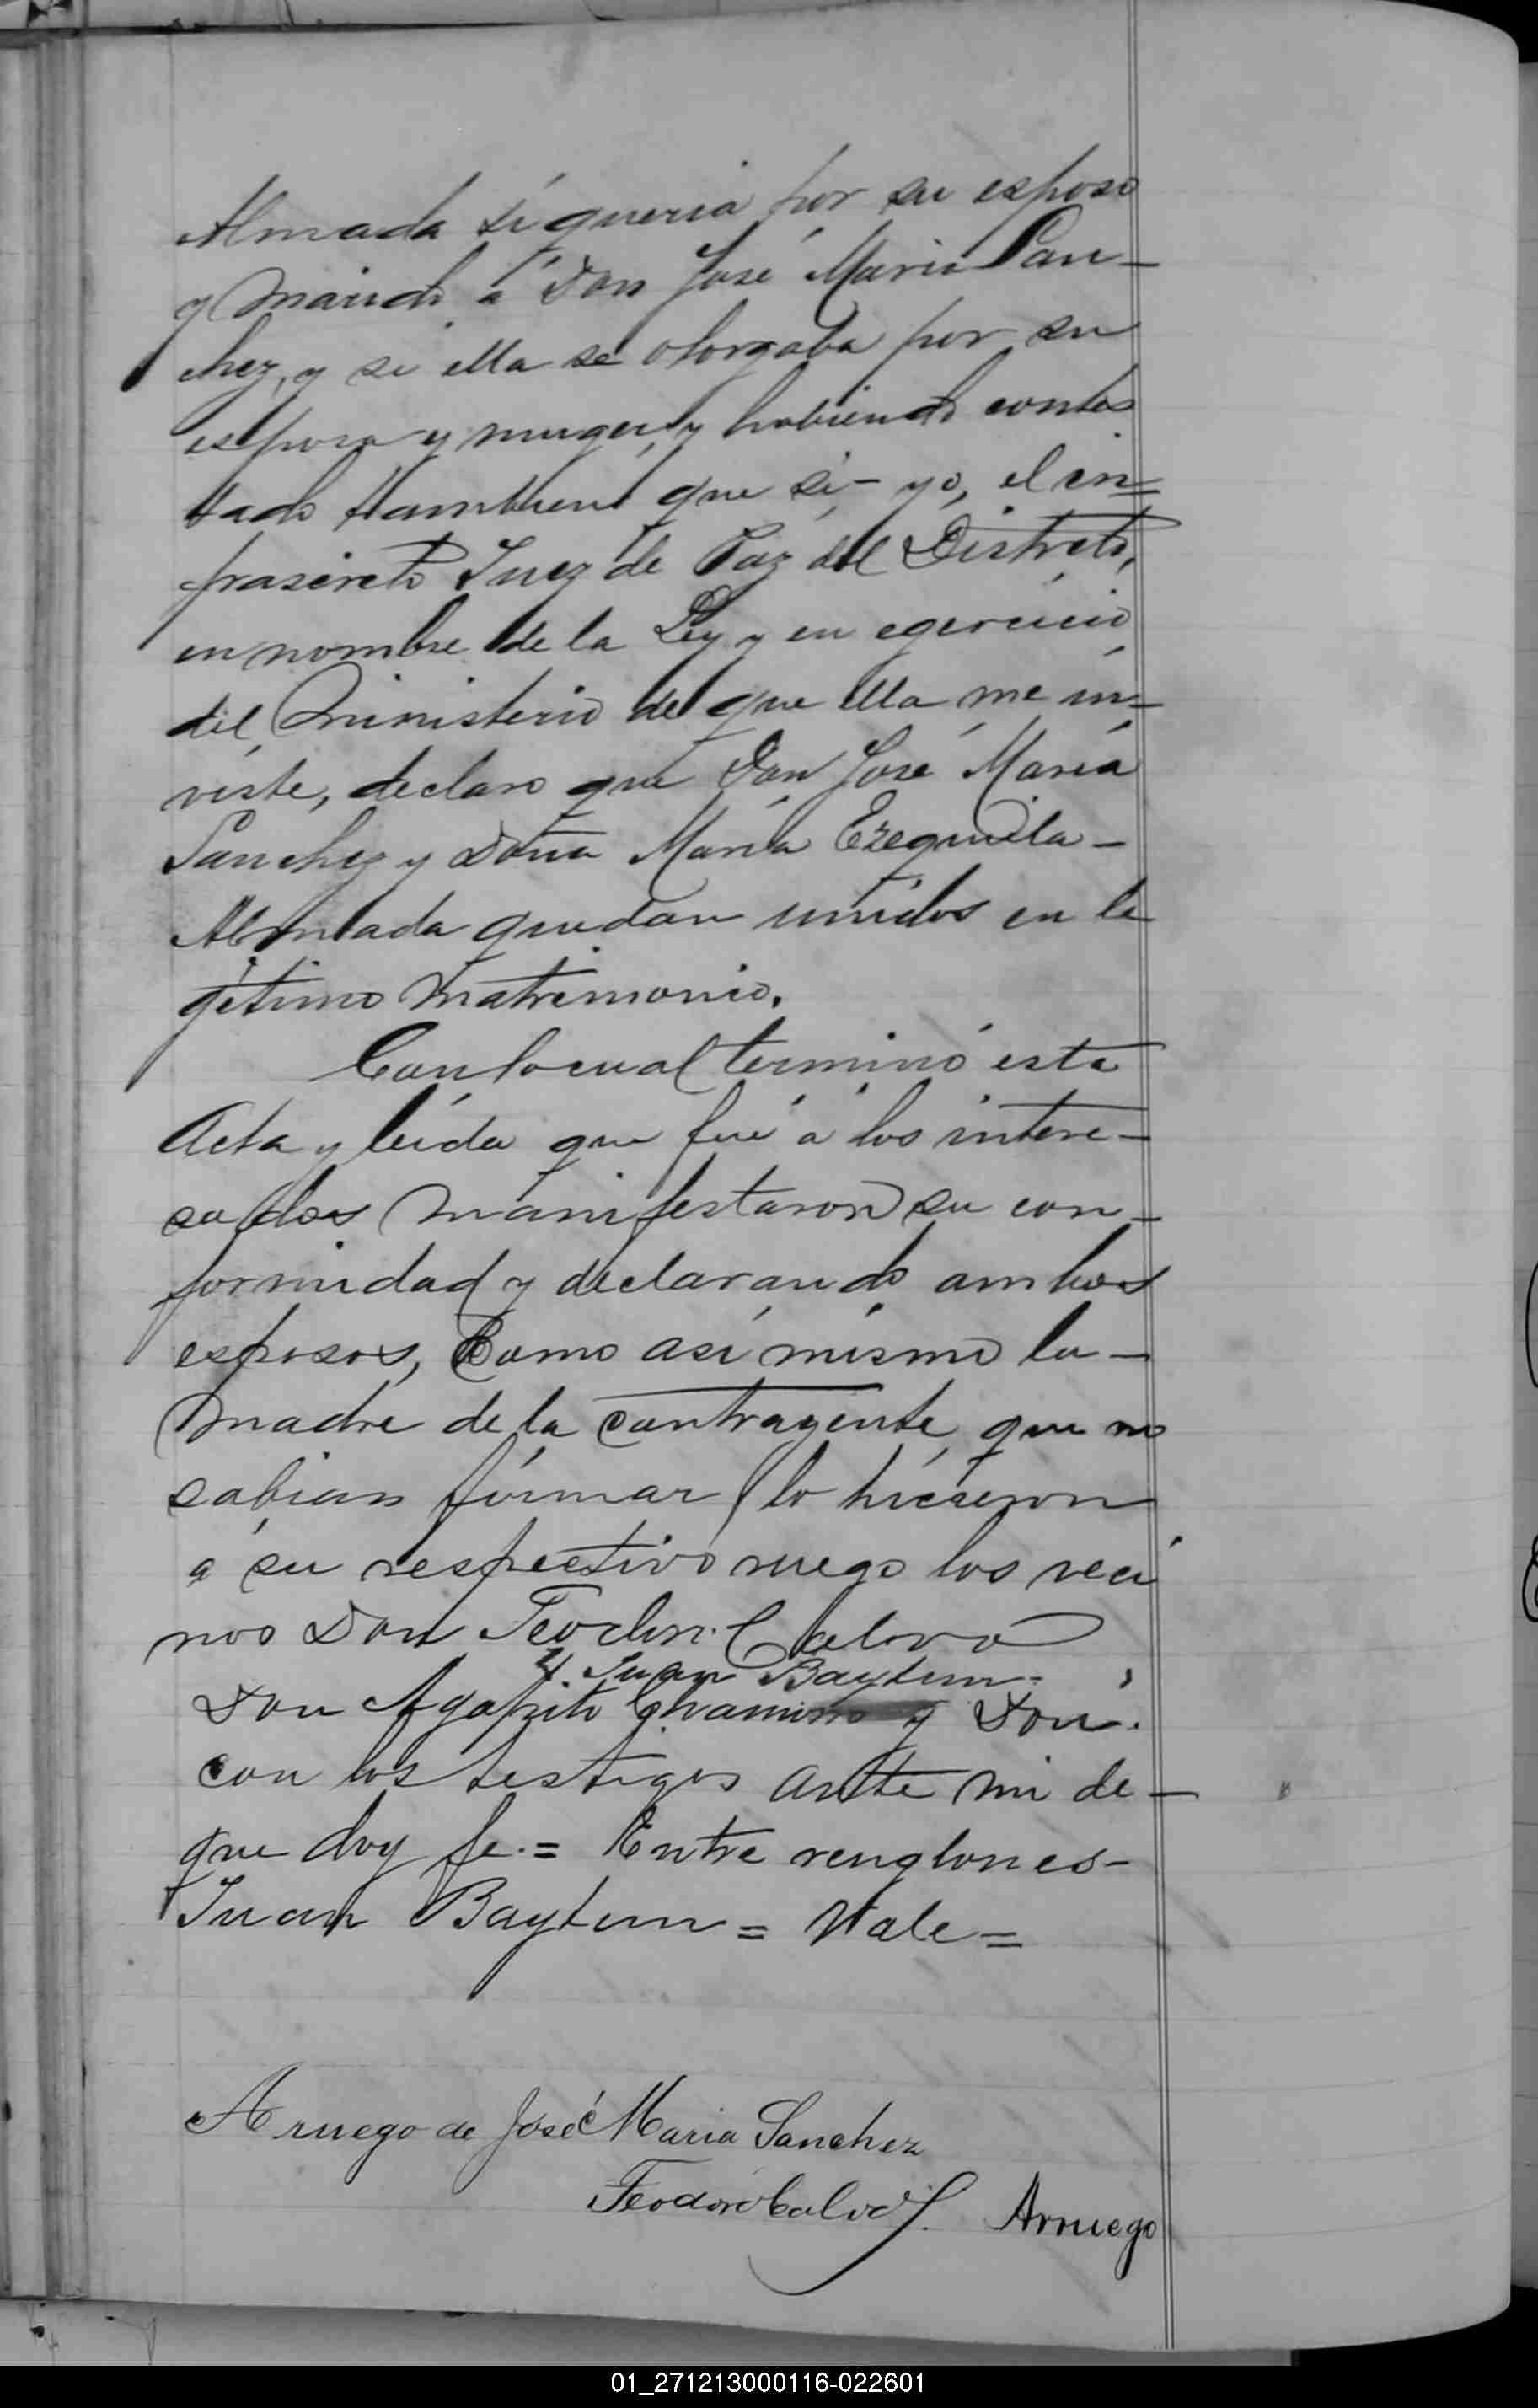 Almada si queria por su esposo
y marido á Don José Maria San-
chez, y si ella se otorgaba por su
esposa y muger, y habiendo contes
tado tambien que si- yo, el in=
frascrito Juez de Paz del Distrito,
en nombre de la Ley y en egercicio
del Ministerio de que ella me in-
viste, declaro que Don José María
Sanchez y Doña María Ezequiela-
Almada quedan unidos en le
gítimo matrimonio.
Con lo cual terminó esta
Acta y leida que fué á los intere-
sados manifestaron su con-
formidad y declarando ambos
esposos, Como así mismo la-
madre de la contrayente, que no
sabian firmar lo hicieron
á su respectivo ruego los veci
nos Don Teodoro Calvo
y Juan Baytum
Don Agapito y Don
con los testigos ante mi de-
que doy fe.= Entre renglones-
Juan Baytum = Vale =
A ruego de José Maria Sanchez
Teodoro Calvo J. Arruego
01_271213000116-022601